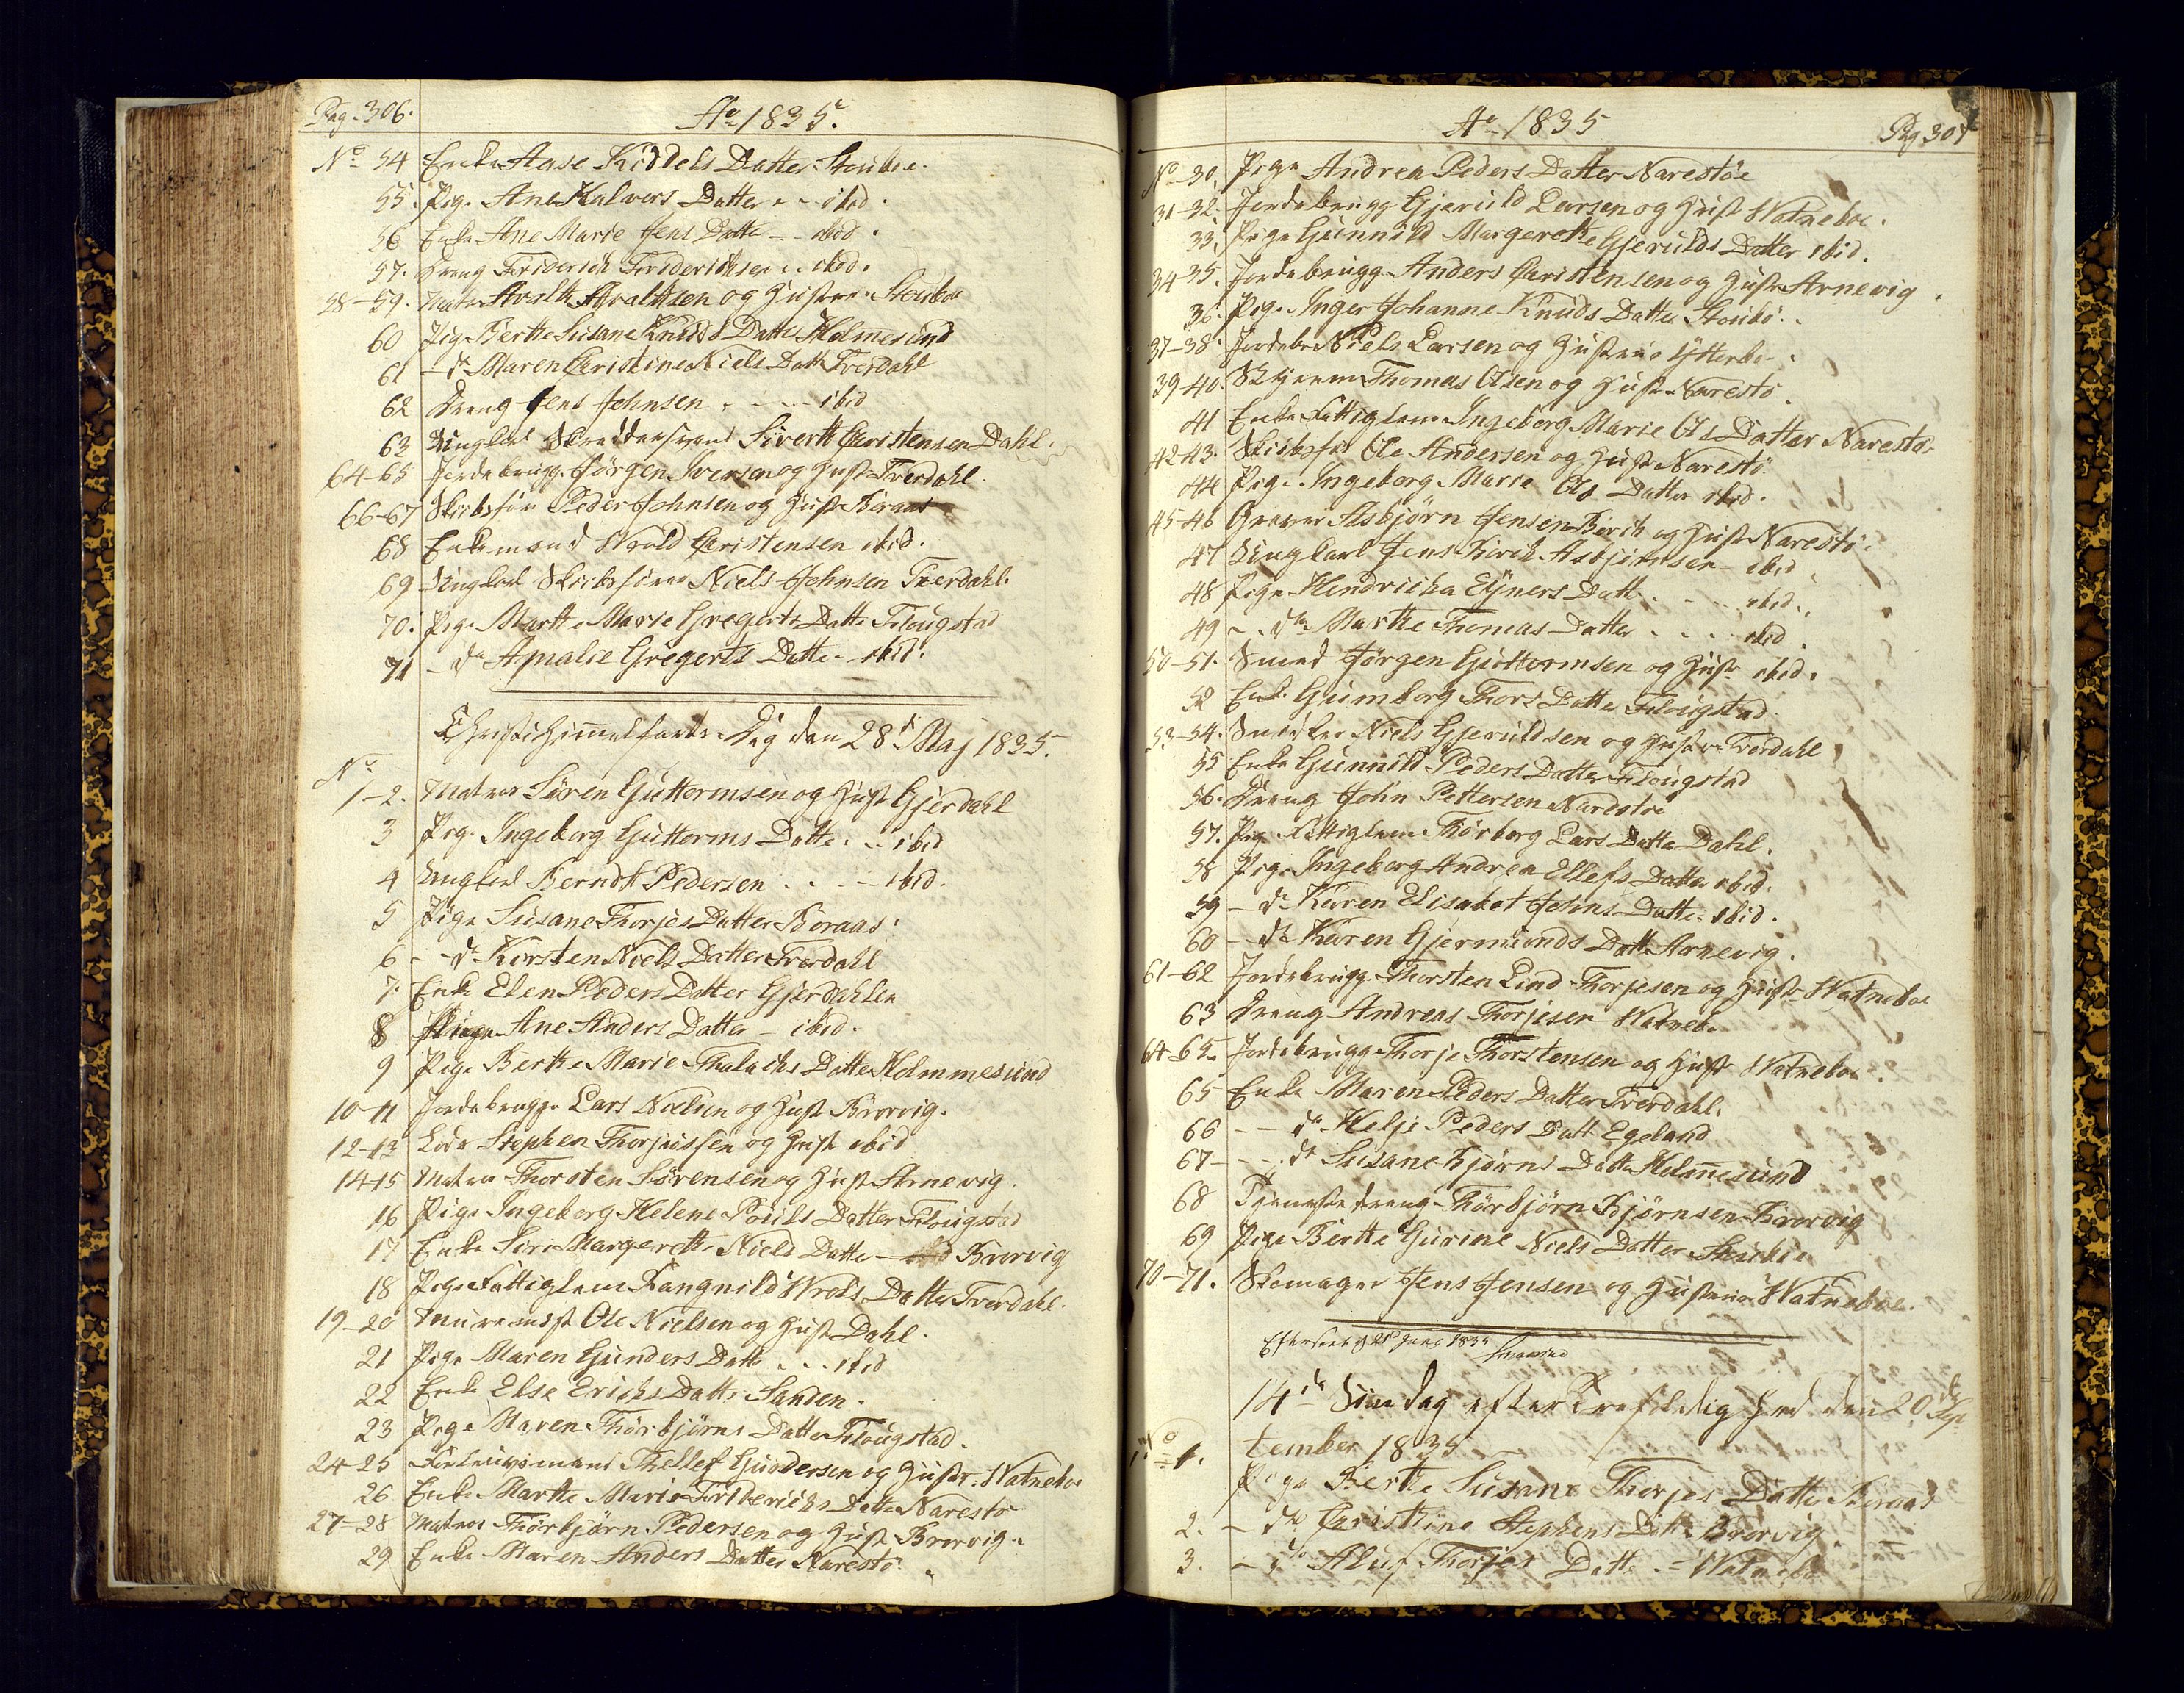 Pag. 306.
Ao 1835.
No 54 Enke Aase Kiddels Datter Stoubøe.
55. Pige Ane Halvors Datter . . ibid.
56 Enke Ane Marie Jens Datte — ibid.
57. Dreng Friderich Friderichsen . . ibid.
58-59. Matr. og Hustrue Stoubøe
60 Pige Berthe Susane Knuds Datte Holmesund
61 — do Maren Christine Niels Datt Tverdahl
62 Dreng Jens Johnsen . . . ibid
63 Ungkarl Skredersvend Sivert Christensen Dahl.
64-65 Jordebrugg. Jörgen Iversen og Hust Tverdahl
66-67 Skibsför Peder Johnsen og Hust Boraas
68 Enkemand Wrold Christensen ibid.
69 Ungkarl Skibsförer Niels Johnsen Tverdahl.
70. Pige Marthe Marie Gregerts Datte Flougstad
71 — do Amalie Gregerts Datte — ibid.
Christi Himmelfarts Dag den 28de Maj 1835.
No
1-2. Matros Sören Guttormsen og Hust Gjerdahl
3 Pige Ingeborg Guttorms Datte . . ibid
4 Ungkarl Berndt Pedersen . . . — ibid.
5 Pige Susane Thorjes Datter Boraas.
6 — do Kirsten Niels Datter Tverdahl
7. Enke Elen Peders Datter Gjerdahlen
8 Pige Ane Anders Datter — ibid.
9 Pige Berthe Marie Datte Holmmesund
10-11 Jordebrugge Lars Nielsen og Hust Brorvig.
12-13 Lods Stephen Thorjussen og Hust ibid
14-15 Matros Thorsten Sörensen og Hust Arnevig.
16 Pige Ingeborg Helene Pouls Datter Flougstad
17 Enke Siri Margrethe Niels Datte — Brorvig
18 Pige Fattiglem Rangnild Wrols Datter Tverdahl.
19-20 Ole Nielsen og Hust Dahl.
21 Pige Maren Gunders Datt . . ibid
22 Enke Else Erichs Datte Sanden.
23 Pige Maren Thörbjörns Datter Flougstad.
24-25 Thellef Gundersen og Hustr. Watneboe
26. Enke Marthe Marie Friderichs Datte Narestö
27-28 Matros Thörbjörn Pedersen og Hust Brorvig.
29 Enke Maren Anders Datter Narestö.
Ao 1835
Pag 307
No 30. Pige Andrea Peders Datter Narestöe
31-32. Jordebrugg Gjeruld Larsen og Hust Watneboe.
33. Pige Gunnild Margrethe Gjerulds Datter ibid.
34-35. Jordebrugg. Anders Christensen og Hustr Arnevig.
36. Pige Inger Johanne Knuds Datter Stoubö.
37-38. Jordebr Niels Larsen og Hustrue Ytterbo.
39-40. Thomas Olsen og Hust Narestö.
41 Enke Fattiglem Ingeborg Marie Ols Datter Narestö
42-43. Skibsför Ole Andersen og Hust Narestö.
44 Pige Ingeborg Marie Ols Datter ibid.
45-46 Graver Asbjörn Jensen Birch og Hustr Narestö.
47 Ungkarl Jens Birch Asbjörnsen — ibid
48 Pige Hendricha Eyners Datt . . . ibid.
49 — do Marthe Thomas Datter . . . ibid.
50-51. Smed Jörgen Guttormsen og Hustr ibid.
52 Enke Gumborg Thors Datte Flougstad
53-54. Snedker Niels Gjeruldsen og Hustrue Tverdahl
55 Enke Gunnild Peders Datter Flougstad
56. Dreng John Pettersen Narestöe
57. Pige Fattiglem Thörborg Lars Datte Dahl.
58 Pige Ingeborg Andrea Ellefs Datter ibid.
59 — do Karen Elisabet Johns Datte ibid.
60 — do Karen Gjermunds Datt Arnevig.
61-62 Jordebrugg. Thorsten Lind Thorjesen og Hustr Watneboe
63 Dreng Andreas Thorjesen Watneb.
64-65. Jordebrugg Thorje Thorstensen og Hust Watneboe.
65 Enke Maren Peders Datter Tverdahl.
66 — do Helje Peders Datt Egeland
67 — do Susane Bjørns Datte Holmesund
68 Tjenestedreng Thörbjörn Bjørnsen Brorvig
69 Pige Birthe Gurine Niels Datter Stoubøe
70-71. Skomager Jens Jensen og Hustrue Watneboe.
Efterseet d. 21 Juni 1835
14de Söndag efter Trefoldighed den 20de Sep
tember 1835
No 1. Pige Berthe Susane Thorjes Datte Boraas
2. — do Christine Stephens Datt Brorvig
3. — do Thorjes Datt. — Watneboe